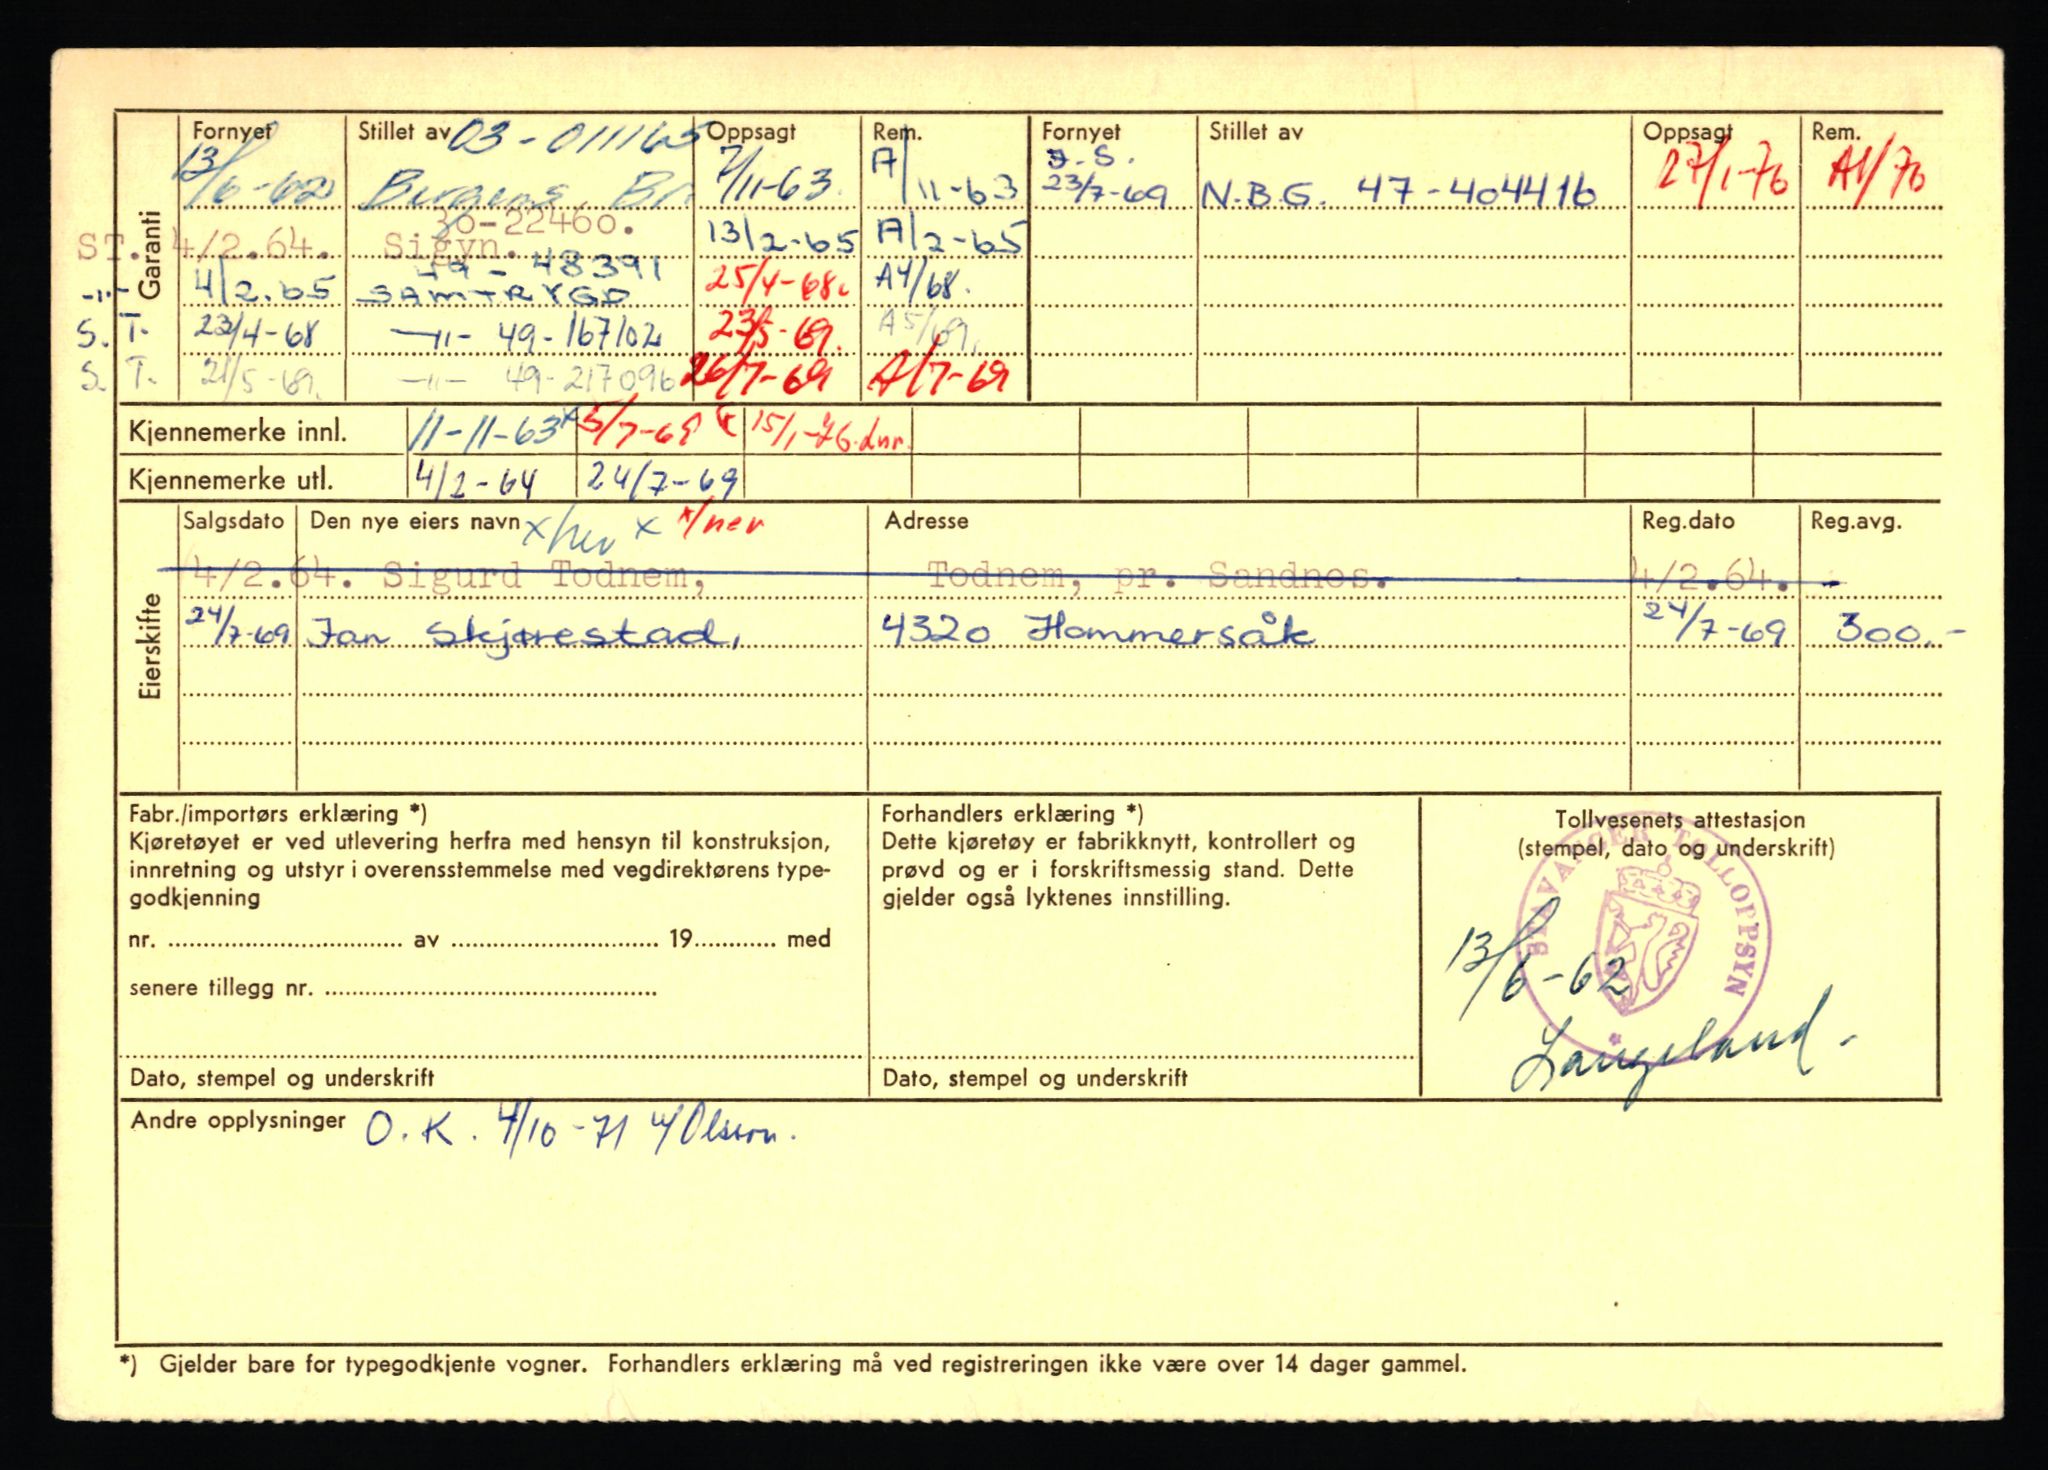 Garanti
Fornyet Stillet av 03-011165 Oppsagt Rem. Fornyet Stillet av Oppsagt Rem.
13/6-62 Bergens Br. 7/11-63. A/11-63 J.S. 23/7-69 N.B.G. 47-404416 27/1-76 A1/76
36-22460.
ST. 4/2.64. Sigyn. 13/2-65 A/2-65
49-48391
-"- 4/2.65 SAMTRYGD 25/4-68. A4/68.
S.T. 23/4-68 -"- 49-167102 23/5-69. A5/69.
S.T. 21/5-69. -"- 49-217096 26/7-69 A/7-69
Kjennemerke innl. 11-11-63 5/7-69 15/1-76.
Kjennemerke utl. 4/2-64 24/7-69
Eierskifte
Salgsdato Den nye eiers navn x/ner x x/ner Adresse Reg.dato Reg.avg.
4/2.64. Sigurd Todnem, Todnem, pr. Sandnes. 4/2.64. -
24/7-69 Jan Skjørestad, 4320 Hommersåk 24/7-69 300.-
Fabr./importørs erklæring *)
Kjøretøyet er ved utlevering herfra med hensyn til konstruksjon,
innretning og utstyr i overensstemmelse med vegdirektørens type-
godkjenning
nr. .......... av .......... 19.......... med
senere tillegg nr. ..........
Dato, stempel og underskrift
Forhandlers erklæring *)
Dette kjøretøy er fabrikknytt, kontrollert og
prøvd og er i forskriftsmessig stand. Dette
gjelder også lyktenes innstilling.
Dato, stempel og underskrift
Tollvesenets attestasjon
(stempel, dato og underskrift)
STAVANGER TOLLOPPSYN
13/6-62
Langeland.
Andre opplysninger O.K. 4/10-71 Olsen.
*) Gjelder bare for typegodkjente vogner. Forhandlers erklæring må ved registreringen ikke være over 14 dager gammel.